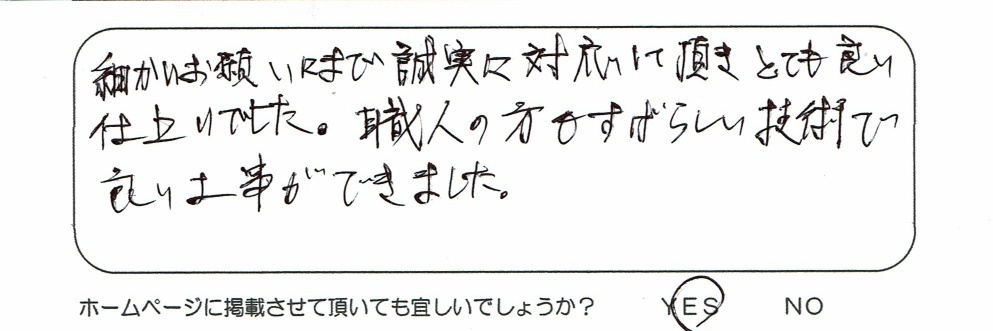 細かいお願いにまで誠実に対応して頂きとても良い
仕上りでした。職人の方もすばらしい技術で
良い工事ができました。
ホームページに掲載させて頂いても宜しいでしょうか？ YES NO